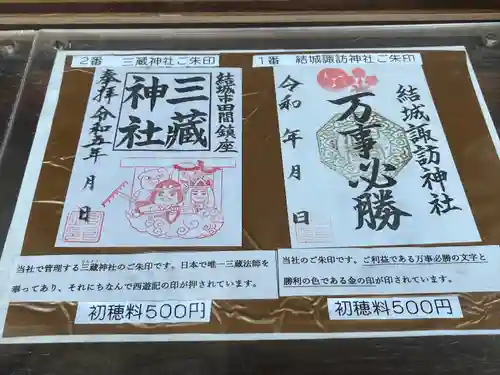 2番　三蔵神社ご朱印
奉拝
令和五年　月　日
三蔵
神社
結城市田間鎮座
当社で管理する三蔵神社のご朱印です。日本で唯一三蔵法師を
奉ってあり、それにちなんで西遊記の印が押されています。
初穂料500円
1番　結城諏訪神社ご朱印
令和　年　月　日
万事必勝
結城諏訪神社
当社のご朱印です。ご利益である万事必勝の文字と
勝利の色である金の印が印されています。
初穂料500円